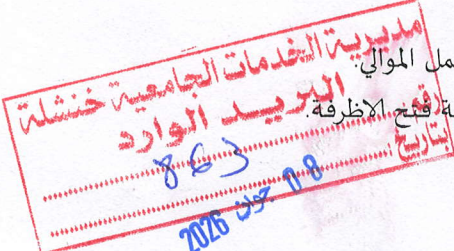 مل الموالي.
ة فتح الاظرفة.
مديرية الخدمات الجامعية خنشلة
البريد الوارد
رقم 863
بتاريخ: 08 جوان 2026